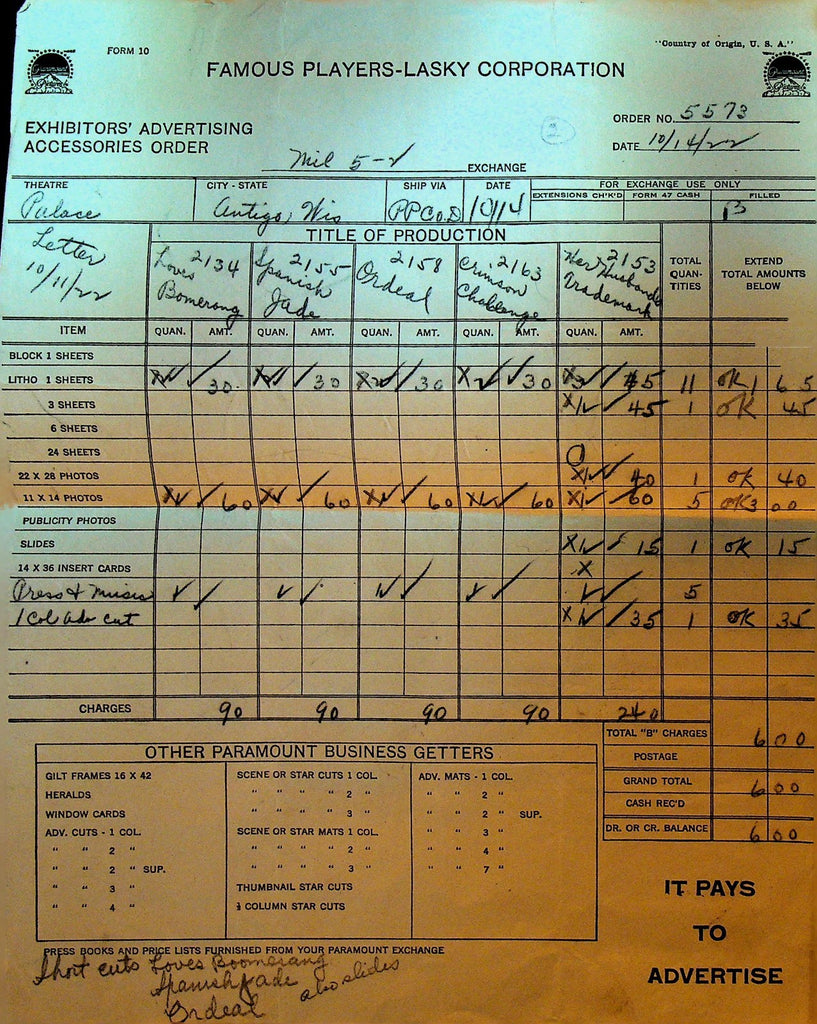 FORM 10
"Country of Origin, U. S. A."
Paramount Pictures
Paramount Pictures
FAMOUS PLAYERS-LASKY CORPORATION
EXHIBITORS' ADVERTISING
ACCESSORIES ORDER
ORDER NO. 5573
DATE 10/14/22
Mil 5-2 EXCHANGE
THEATRE CITY - STATE SHIP VIA DATE FOR EXCHANGE USE ONLY
EXTENSIONS CH'K'D FORM 47 CASH FILLED
Palace Antigo, Wis PPCo.D 10/14 B
Letter
10/11/22
TITLE OF PRODUCTION
2134 Loves Bomerong
2155 Spanish Jade
2158 Ordeal
2163 Crimson Challenge
2153 Her Husbands Trademark
TOTAL QUAN- TITIES
EXTEND TOTAL AMOUNTS BELOW
ITEM QUAN. AMT. QUAN. AMT. QUAN. AMT. QUAN. AMT. QUAN. AMT.
BLOCK 1 SHEETS
LITHO 1 SHEETS X2 30 X2 30 X2 30 X2 30 X3 45 11 OK 1 65
3 SHEETS X1 45 1 OK 45
6 SHEETS
24 SHEETS
22 X 28 PHOTOS X1 40 1 OK 40
11 X 14 PHOTOS X1 60 X1 60 X1 60 X1 60 X1 60 5 OK 3 00
PUBLICITY PHOTOS
SLIDES X1 15 1 OK 15
14 X 36 INSERT CARDS X
Press & Music 1 1 1 1 1 5
1 Col adv cut X1 35 1 OK 35
CHARGES 90 90 90 90 240
TOTAL "B" CHARGES 6 00
POSTAGE
GRAND TOTAL 6 00
CASH REC'D
DR. OR CR. BALANCE 6 00
OTHER PARAMOUNT BUSINESS GETTERS
GILT FRAMES 16 X 42
HERALDS
WINDOW CARDS
ADV. CUTS - 1 COL.
" " 2 "
" " 2 " SUP.
" " 3 "
" " 4 "
SCENE OR STAR CUTS 1 COL.
" " " " 2 "
" " " " 3 "
SCENE OR STAR MATS 1 COL.
" " " " 2 "
" " " " 3 "
THUMBNAIL STAR CUTS
½ COLUMN STAR CUTS
ADV. MATS - 1 COL.
" " 2 "
" " 2 " SUP.
" " 3 "
" " 4 "
" " 7 "
IT PAYS
TO
ADVERTISE
PRESS BOOKS AND PRICE LISTS FURNISHED FROM YOUR PARAMOUNT EXCHANGE
Short cuts Loves Boomerang
Spanish Jade also slides
Ordeal